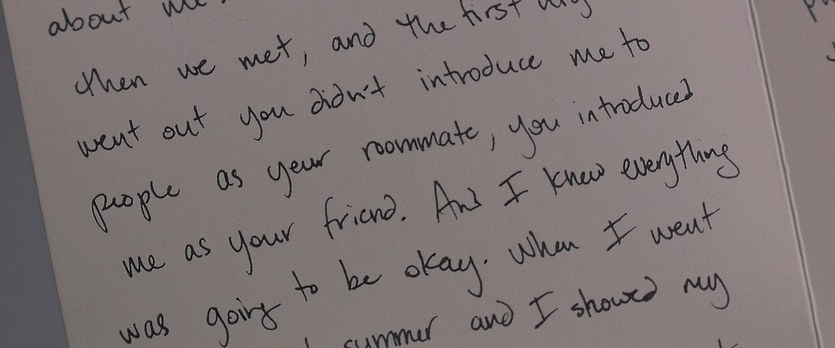 about me
then we met, and the first
went out you didn't introduce me to
people as your roommate, you introduced
me as your friend. And I knew everything
was going to be okay. When I went
summer and I showed my